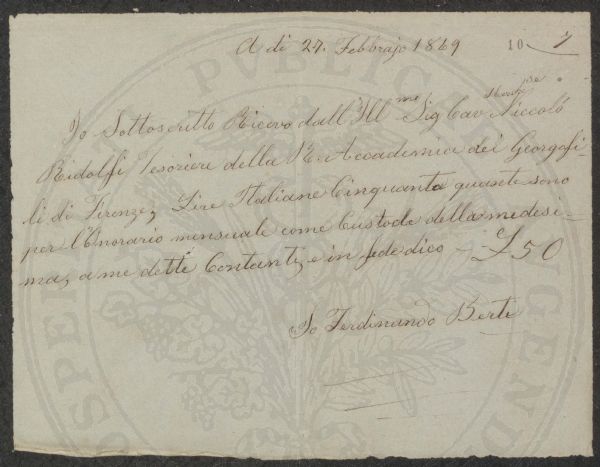 A di 27. Febbrajo 1869
10 7
Io Sottoscritto Ricevo dall'Ill.me Sig Cav Niccolò
Ridolfi Tesoriere della R. Accademia dei Georgofi-
li di Firenze, Lire Italiane Cinquanta, quaste sono
per l'Onorario mensuale come Custode della medesi-
ma, a me dette Contanti, e in fede dico – £50
Io Ferdinando Berti
PUBLICAE
PROSPERITATI
AUGENDAE